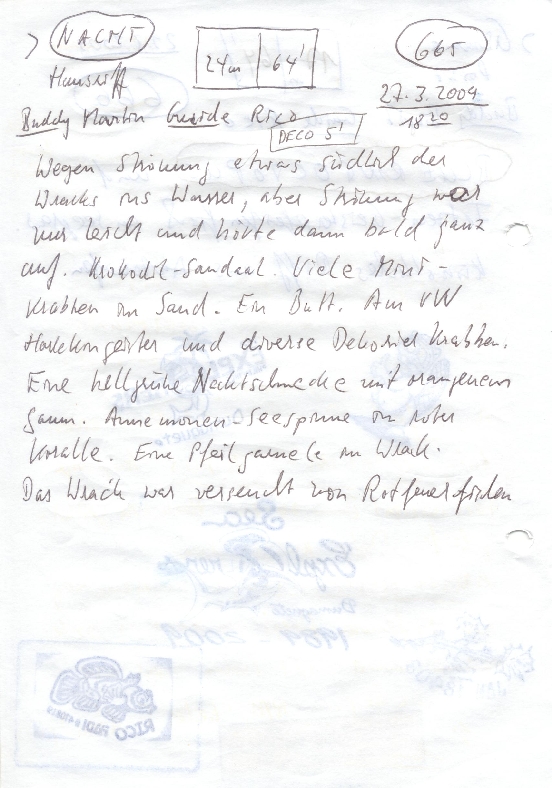 > NACHT
24m 64'
665
Hausriff
27.3.2009
18 20
Buddy Martin Guide Rico
DECO 5'
Wegen Strömung etwas südlich des
Wracks ins Wasser, aber Strömung war
nur leicht und hörte dann bald ganz
auf. Krokodil-Sandaal. Viele Mini-
Krabben im Sand. Ein Butt. Am VW
Harlekingeister und diverse Dekorier Krabben.
Eine hellgrüne Nacktschnecke mit orangenem
Saum. Annemonen-Seespinne in roter
Koralle. Eine Pfeilgarnele im Wrack.
Das Wrack war verseucht von Rotfeuerfischen
Sea
Explorers
Dumaguete
1984 - 2009
RICO PADI